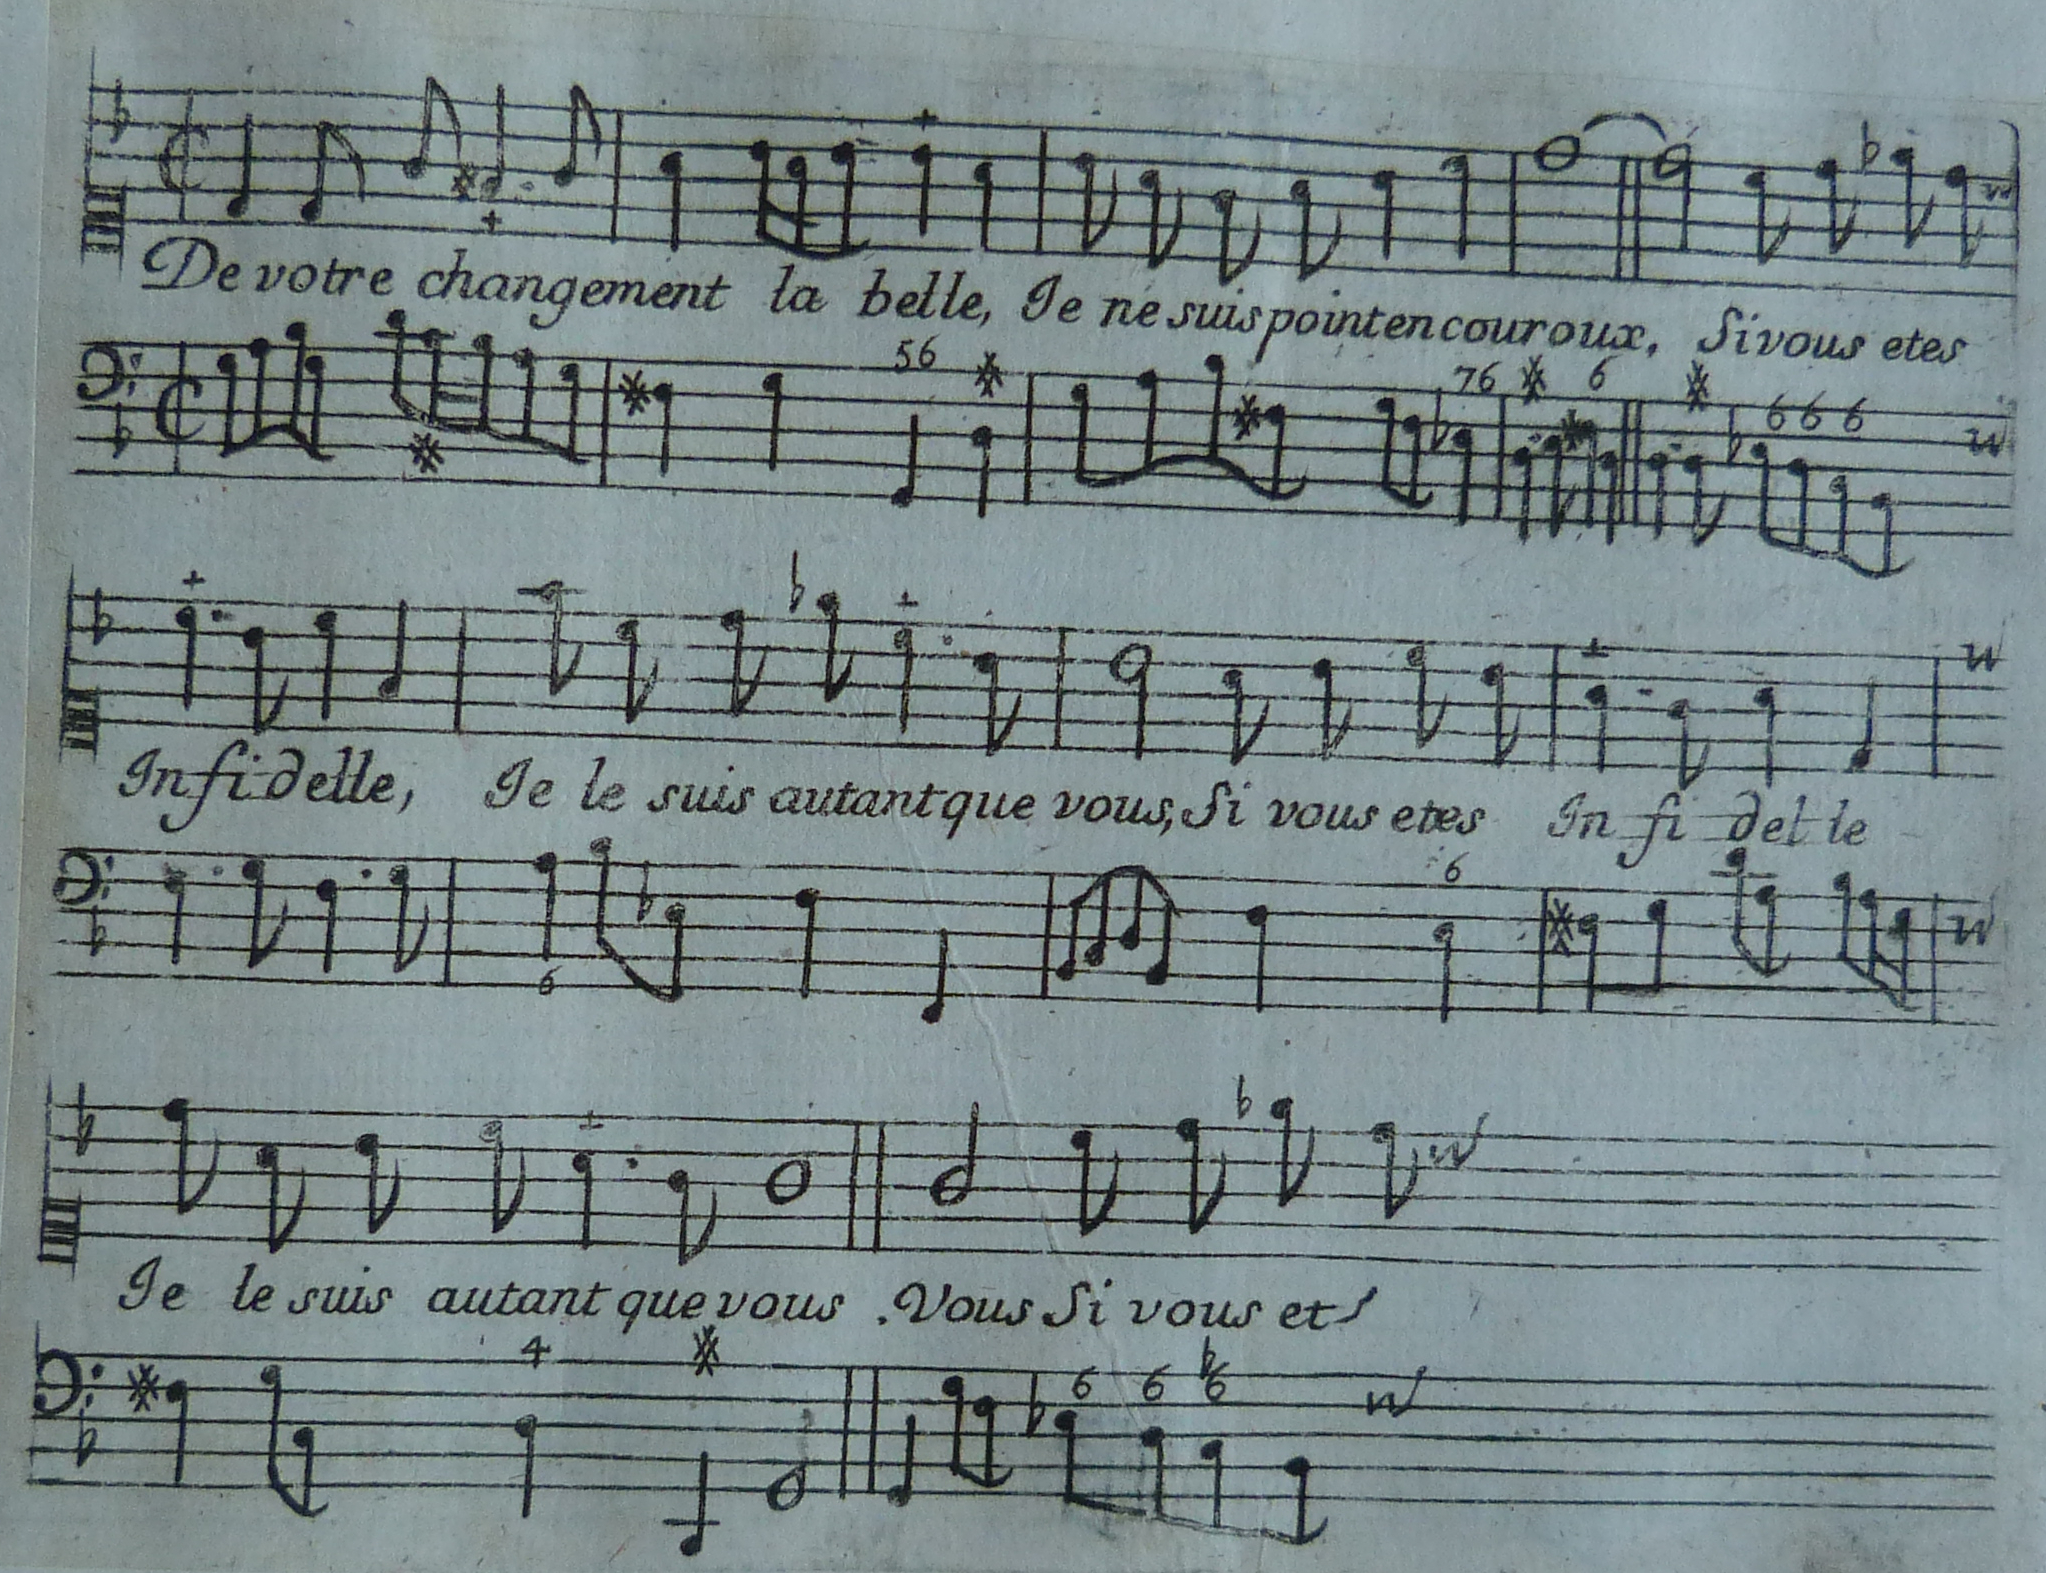 De votre changement la belle, Je ne suis point en couroux. Si vous etes
5 6 7 6 6 6 6 6
Infidelle, Je le suis autant que vous, Si vous etes In fi del le
6 6
Je le suis autant que vous. Vous Si vous et
4 6 6 6